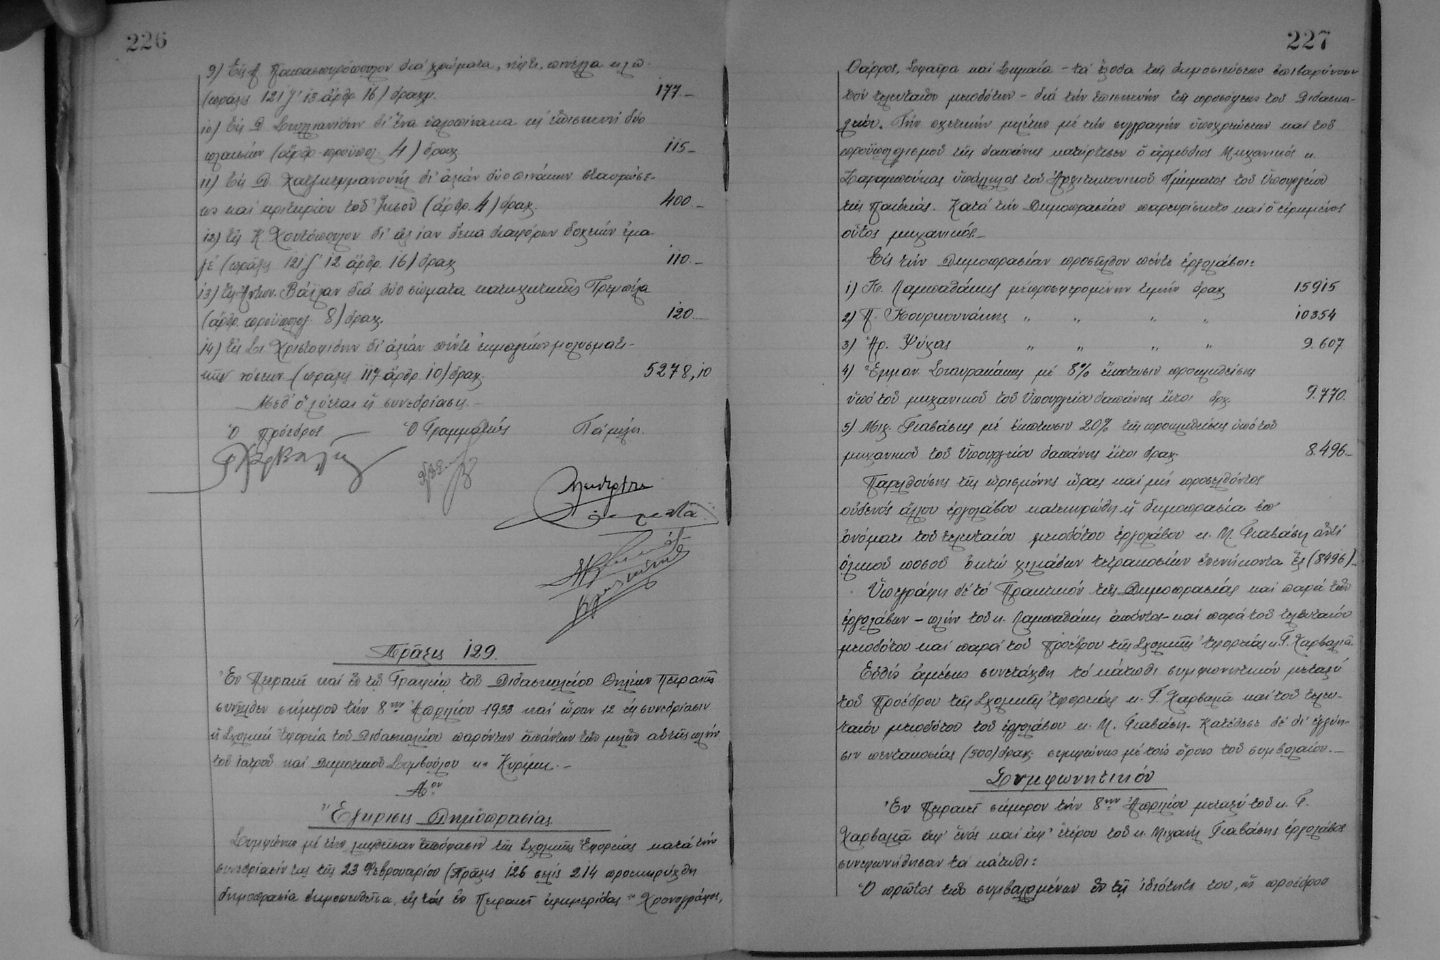 226
9) Εἰς Α. Παπασπυρόπουλον διὰ χρώματα, νέφτι, κλπ.
(πρᾶξις 121 ἄρθρ 16) δραχμ. 177-
10) Εἰς Δ. δι' ἕνα καὶ ἐπισκευὴν δύο
(ἄρθρ. προϋπολ. 4) δραχ 115-
11) Εἰς Δ. δι' ἀξίαν δύο πινάκων σταυρώσε-
ως καὶ τοῦ Ἰησοῦ (ἄρθρ. 4) δραχ. 400.-
12) τῆς Κ. Χουτόπουλον δι' ἀξίαν δέκα διαφόρων δοχείων
(πρᾶξις 121 ἄρθρ. 16) δραχ 110-
13) Βάϊλαν διὰ δύο σώματα
(ἄρθρ. προϋπολ. 8) δραχ. 120-
14) Χριστοφίδην δι' ἀξίαν πέντε
(πρᾶξις 117 ἄρθρ. 10) δραχ. 5278,10
Μεθ' ὃ λύεται ἡ συνεδρίασις.-
Ὁ Πρόεδρος Ὁ Γραμματεύς Τὰ μέλη.
Πρᾶξις 129.
Ἐν Πειραιεῖ καὶ ἐν τῷ Γραφείῳ τοῦ Διδασκαλείου Θηλέων Πειραιῶς
συνῆλθεν σήμερον τὴν 8ην Ἀπριλίου 1933 καὶ ὥραν 12 εἰς συνεδρίασιν
ἡ Σχολικὴ Ἐφορεία τοῦ Διδασκαλείου παρόντων ἁπάντων τῶν μελῶν αὐτῆς πλὴν
τοῦ ἰατροῦ καὶ Δημοτικοῦ Συμβούλου κ.
Αον
Ἔγκρισις Δημοπρασίας
Συμφώνως μὲ τὴν ληφθεῖσαν ἀπόφασιν τῆς Σχολικῆς Ἐφορείας κατὰ τὴν
συνεδρίασίν της τῆς 23 Φεβρουαρίου (Πρᾶξις 126 σελίς 214 προεκηρύχθη
δημοπρασία δημοσιευθεῖσα εἰς τὰς ἐν Πειραιεῖ ἐφημερίδας "Χρονογράφος,
227
Θάρρος, Σφαῖρα καὶ Σημαία - τὰ ἔξοδα τῆς δημοσιεύσεως ἐπιβαρύνουν
τὸν τελευταῖον μειοδότην - διὰ τὴν ἐπισκευὴν τῆς προσόψεως τοῦ Διδασκα-
λείου. Τὴν σχετικὴν μελέτην μὲ τὴν συγγραφὴν ὑποχρεώσεων καὶ τοῦ
προϋπολογισμοῦ τῆς δαπάνης κατήρτισεν ὁ ἁρμόδιος Μηχανικὸς κ.
ὑπάλληλος τοῦ Ἀρχιτεκτονικοῦ Τμήματος τοῦ Ὑπουργείου
τῆς Παιδείας. Κατὰ τὴν Δημοπρασίαν παρευρίσκετο καὶ ὁ εἰρημένος
οὗτος μηχανικός.-
Εἰς τὴν Δημοπρασίαν προσῆλθον πέντε ἐργολάβοι:
1) Κ. Λαμπαδάκης μὲ προσφερομένην τιμὴν δραχ 15915
2) Π. Κουρκουνάκης " " " " 10354
3) Ἀρ. Ψύχας " " " " 9.607
4) Ἐμμαν. Σταυρακάκης μὲ 8% ἔκπτωσιν προμηθείσης
ὑπὸ τοῦ μηχανικοῦ τοῦ Ὑπουργείου δαπάνης ἤτοι δρχ. 9.770.
5) Μιχ. Γιαβάσης μὲ ἔκπτωσιν 20% τῆς προμηθείσης ὑπὸ τοῦ
μηχανικοῦ τοῦ Ὑπουργείου δαπάνης ἤτοι δραχ. 8.496-
Παρελθούσης τῆς ὡρισμένης ὥρας καὶ μὴ προσελθόντος
οὐδενὸς ἄλλου ἐργολάβου κατεκυρώθη ἡ δημοπρασία ἐπ'
ὀνόματι τοῦ τελευταίου μειοδότου ἐργολάβου κ. Μ. Γιαβάση ἀντὶ
ὁλικοῦ ποσοῦ ὀκτὼ χιλιάδων τετρακοσίων ἐνενήκοντα ἓξ (8496).
Ὑπεγράφη δὲ τὸ Πρακτικὸν τῆς Δημοπρασίας καὶ παρὰ τῶν
ἐργολάβων - πλὴν τοῦ κ. Λαμπαδάκη ἀπόντος - καὶ παρὰ τοῦ τελευταίου
μειοδότου καὶ παρὰ τοῦ Προέδρου τῆς Σχολικῆς Ἐφορείας κ. Γ. Χαρβαλιᾶ
Εὐθὺς ἀμέσως συνετάχθη τὸ κάτωθι συμφωνητικὸν μεταξὺ
τοῦ Προέδρου τῆς Σχολικῆς Ἐφορείας κ. Γ. Χαρβαλιᾶ καὶ τοῦ τελευ-
ταίου μειοδότου τοῦ ἐργολάβου κ. Μ. Γιαβάση. Κατέθεσε δὲ δι' ἐγγύη-
σιν πεντακοσίας (500) δραχ. συμφώνως μὲ τοὺς ὅρους τοῦ συμβολαίου.-
Συμφωνητικόν
Ἐν Πειραιεῖ σήμερον τὴν 8ην Ἀπριλίου μεταξὺ τοῦ κ. Γ.
Χαρβαλιᾶ ἀφ' ἑνὸς καὶ ἀφ' ἑτέρου τοῦ κ. Μιχαὴλ Γιαβάση ἐργολάβος
συνεφωνήθησαν τὰ κάτωθι:
Ὁ πρῶτος τῶν συμβαλλομένων ἐν τῇ ἰδιότητί του, ὡς προέδρου